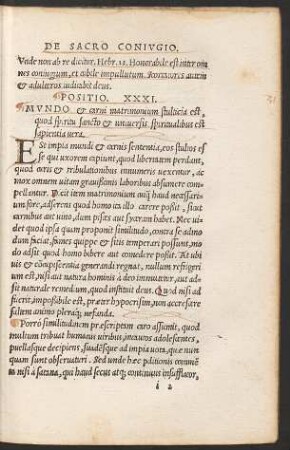 DE SACRO CONIVGIO.
Vnde non ab re dicitur, Hebr. 13. Honorabile est inter om
nes coniugium, et cubile impollutum. Scortatores autem
& adulteros iudicabit deus.
POSITIO. XXXI.
MVNDO & carni matrimonium stulticia est,
quod spiritu sancto & uniuersis spiritualibus est
sapientia uera.
ESt impia mundi & carnis sententia, eos stultos es
se qui uxorem capiunt, quod libertatem perdant,
quod curis & tribulationibus innumeris uexentur, ac
mox omnem uitam grauissimis laboribus absumere com
pellantur. Ad id item matrimonium haud necessa
rium fore, asserens quod homo illo carere possit, sicut
carnibus aut uino, dum pisces aut syceram habet. Nec ui
det quod ipsa quam proponit similitudo, contra se admo
dum faciat, homines quippe & sitis temperari possunt, nō
adeo quod homo bibere aut comedere possit. At ubi
uis & cōcupiscentia generandi regnat, nullum refrigeri
um est, nisi aut natura hominis à deo immutetur, aut ad
sit naturale remedium, quod instituit deus. Quod nisi ad
fuerit, impossibile est, præter hypocrisim, non accresçere
saltem animo pleraq; nefanda.
Porrò similitudinem præscriptam caro assumit, quod
multum tribuat humanis uiribus, incautos adolescentes,
puellasque decipiens, suadēsque ad impia uota, quæ nun
quam sunt obseruaturi. Sed unde hæc petitionis
nisi à satana, qui haud secus atq; continuus insufflator,
i 2
31